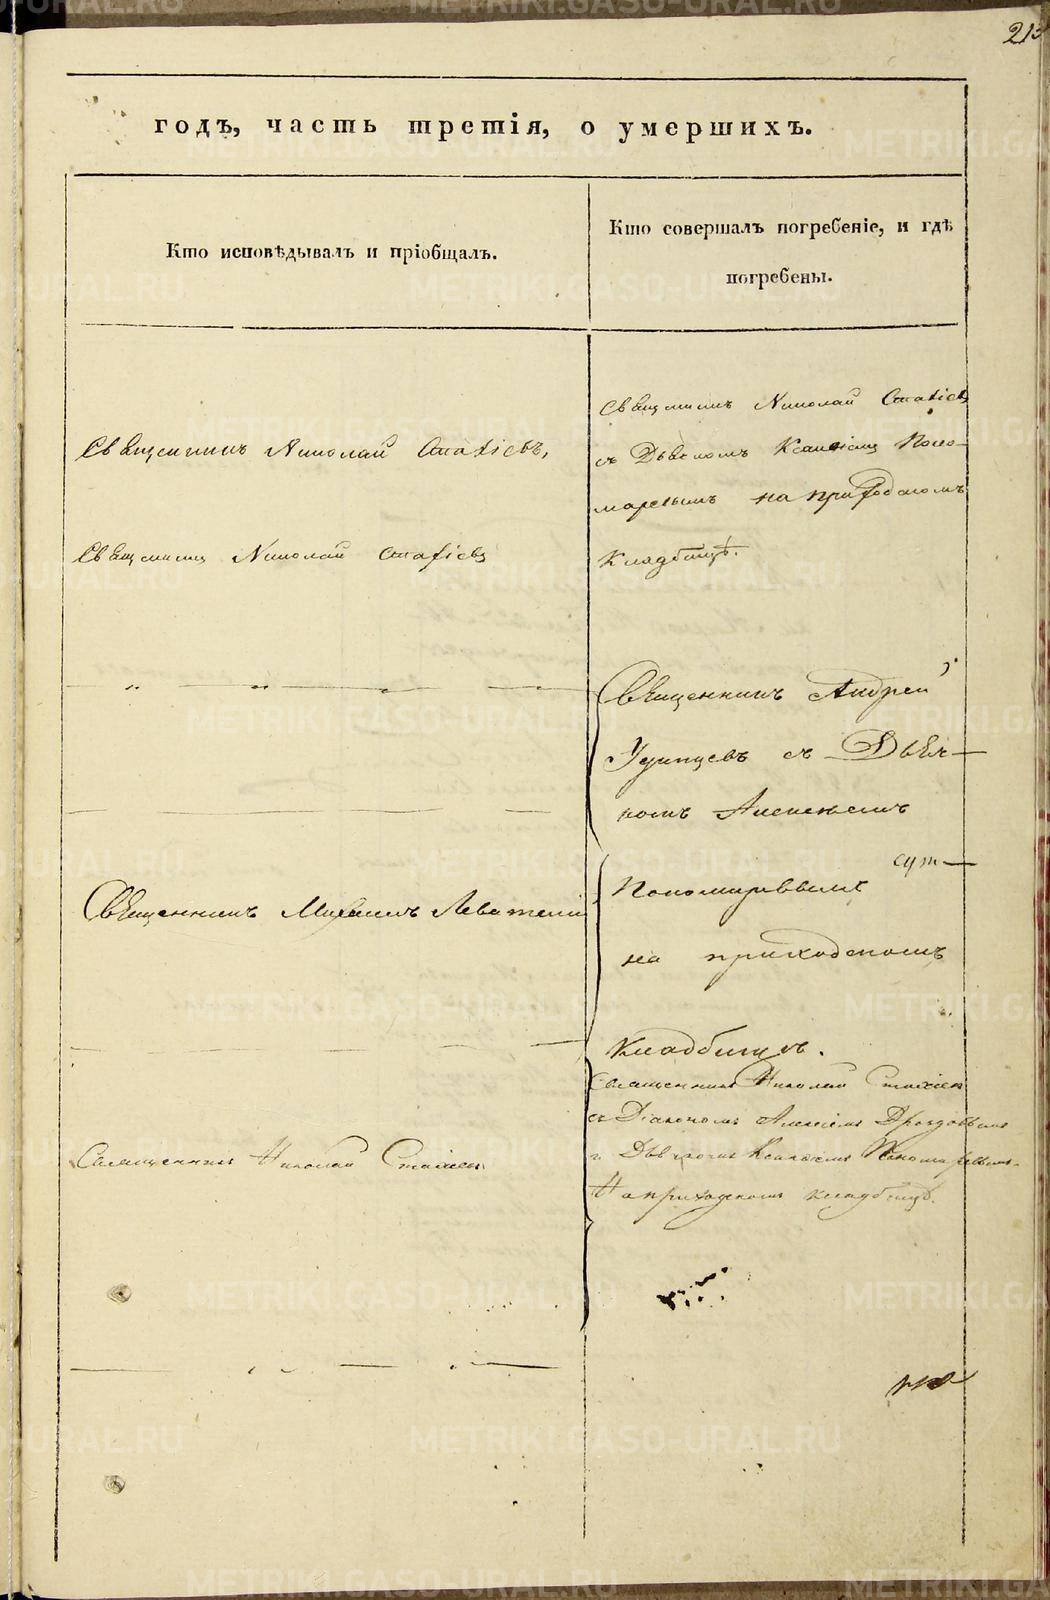 213
годъ, часть третія, о умершихъ.
Кто исповѣдывалъ и пріобщалъ.
Кто совершалъ погребеніе, и гдѣ
погребены.
Священникъ Николай Стахіевъ
съ Дьячкомъ Поно-
маревымъ на приходскомъ
кладбищѣ.
Священникъ Николай Стахіевъ,
Священникъ Николай Стахіевъ
Священникъ Андрей
Удинцевъ съ Дьяч-
комъ Алексѣемъ
Пономаревымъ
на приходскомъ
кладбищѣ.
Священникъ Михаилъ Левитскій
Священникъ Николай Стахіев
съ Діакономъ Алексіемъ Дроздовымъ
и Дьячкомъ Пономаревымъ
На приходскомъ кладбищѣ.
Священникъ Николай Стахіев
METRIKI.GASO-URAL.RU